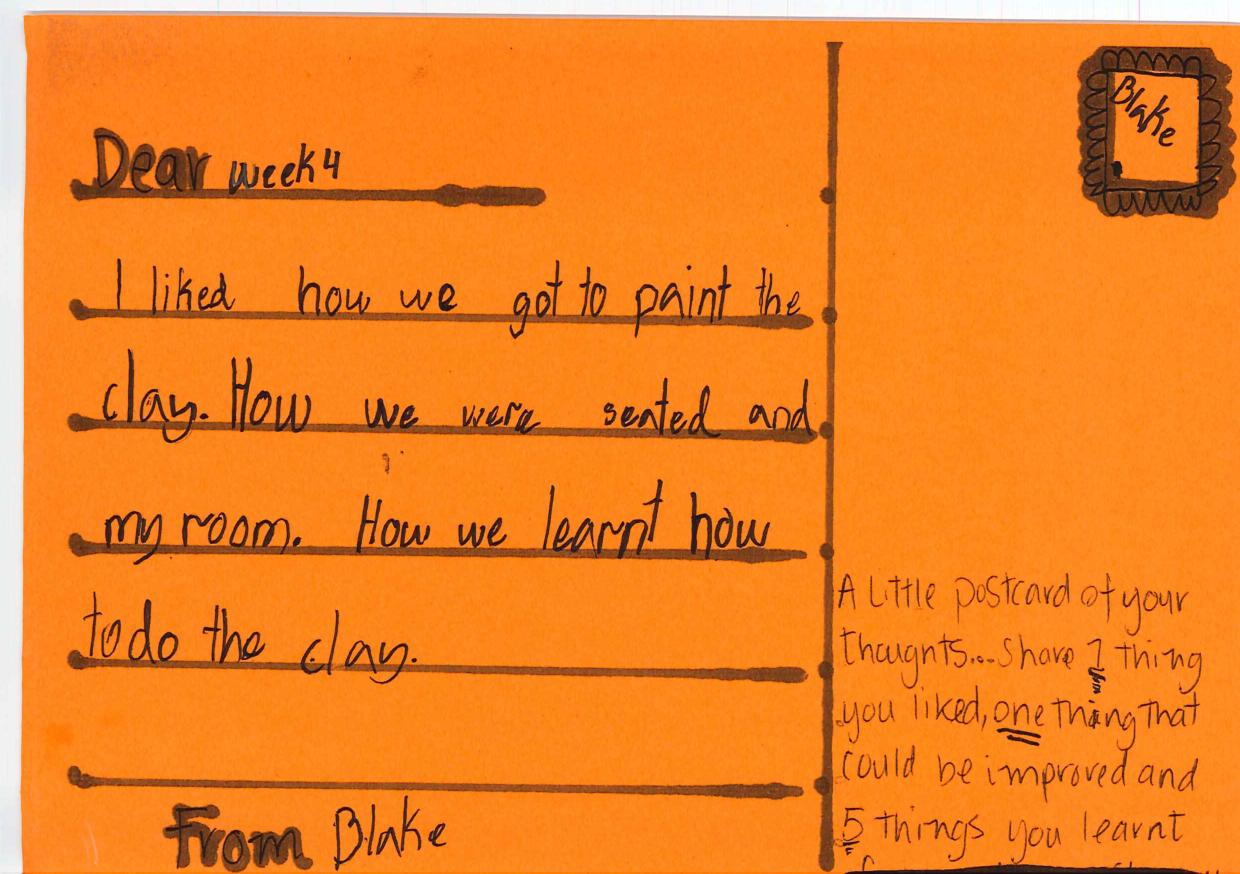 Dear week 4
I liked how we got to paint the
clay. How we were seated and
my room. How we learnt how
to do the clay.
From Blake
Blake
A Little postcard of your
thoughts... Share 1 thing
you liked, one thing that
could be improved and
5 things you learnt